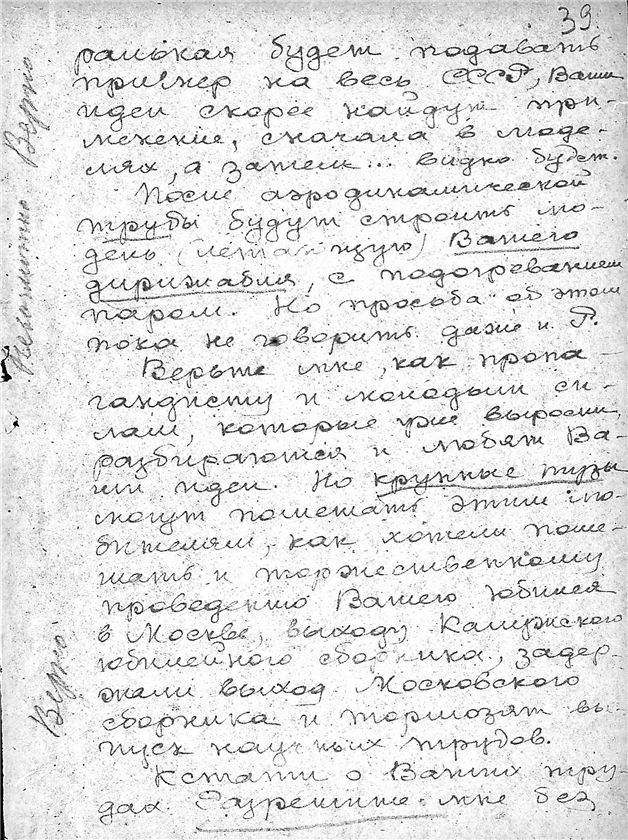 39.
ральная будет подавать
пример на весь СССР, Ваши
идеи скорее найдут при-
менение, сначала в моде-
лях, а затем... видно будет.
После аэродинамической
трубы будут строить мо-
дель (летающую) Вашего
дирижабля, с подогреванием
паром. Но просьба об этом
пока не говорить даже и Р.
Верьте мне, как пропа-
гандисту и молодым си-
лам, которые уже выросли,
разбираются и любят Ва-
ши идеи. Но крупные тузы
могут помешать этим лю-
бителям, как хотели поме-
шать и торжественному
проведению Вашего юбилея
в Москве, выходу Калужского
юбилейного сборника, задер-
жали выход Московского
сборника и тормозят вы-
пуск научных трудов.
Кстати о Ваших тру-
дах. Разрешите мне без
Верно
Верно